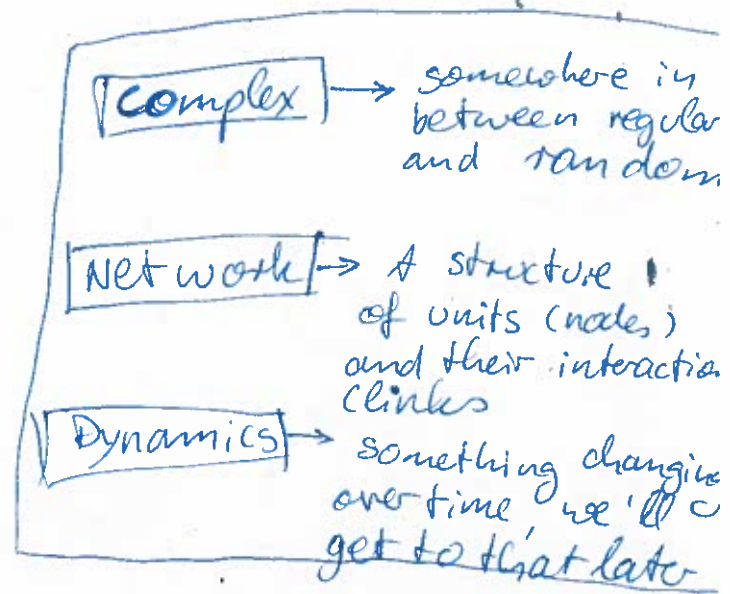 Complex → somewhere in
between regular
and random
Network → A structure
of units (nodes)
and their interactio
(links
Dynamics → something changing
over time, we'll
get to that later